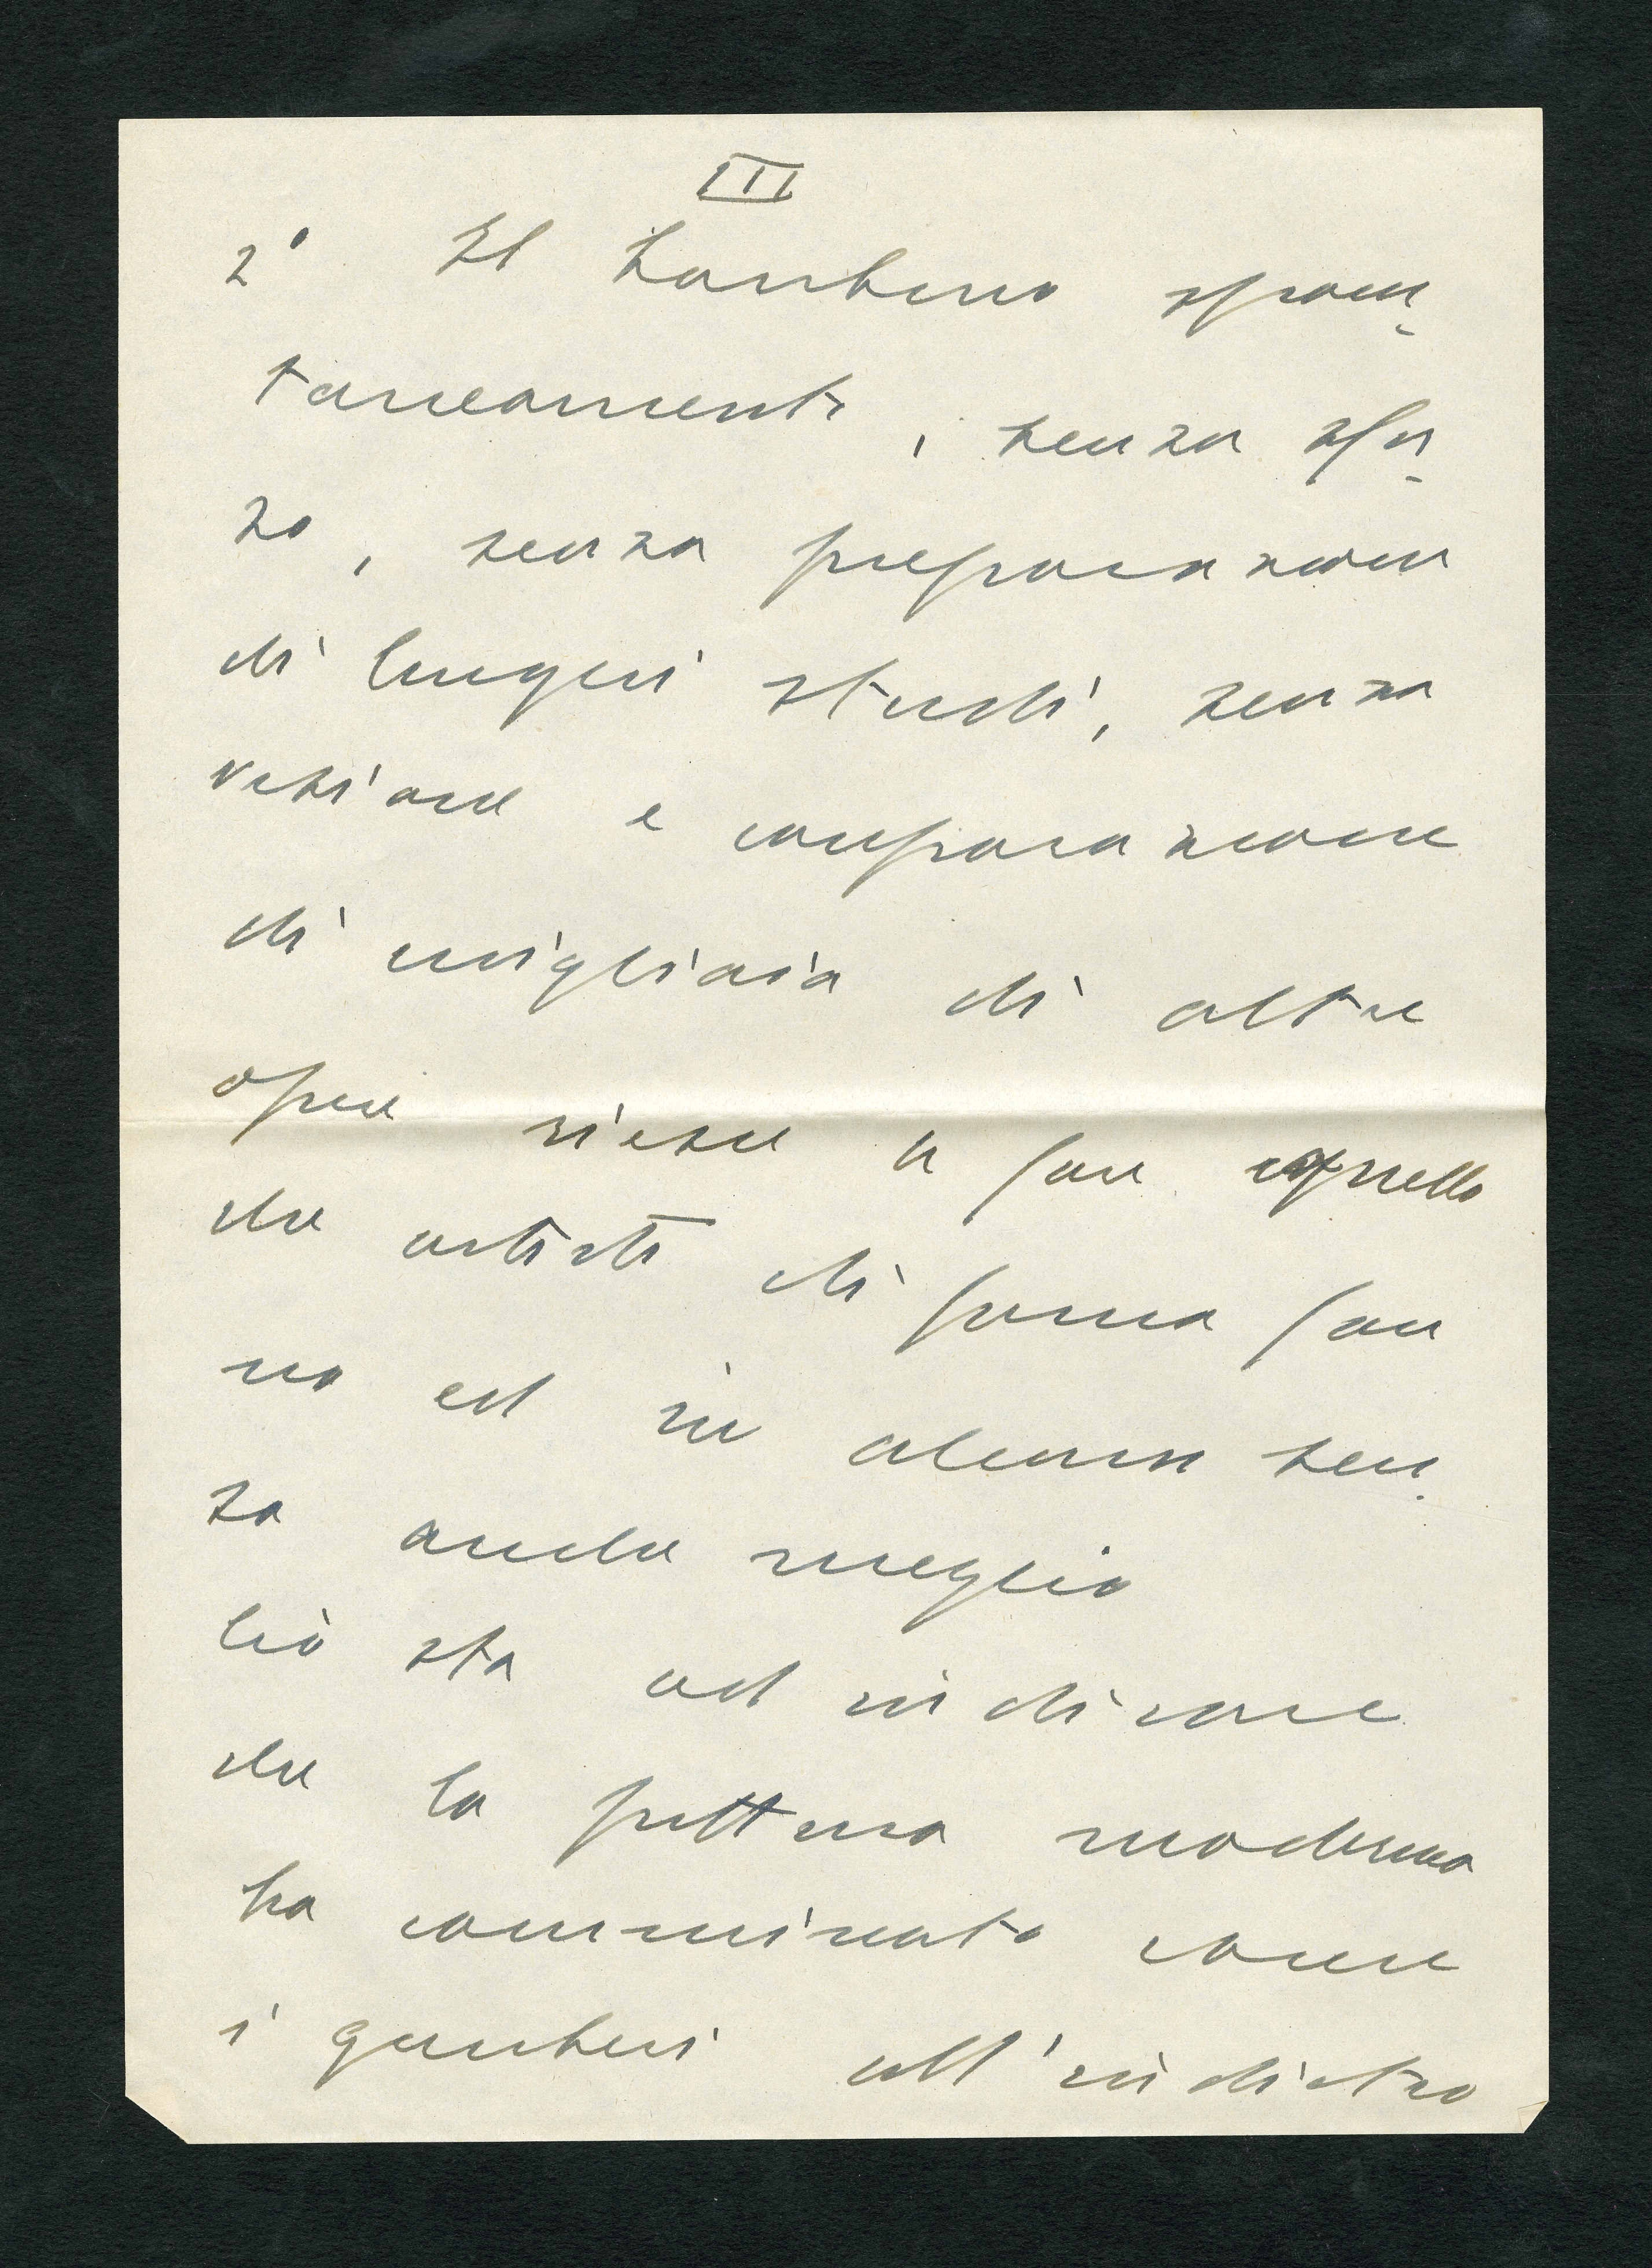 III
2° Il bambino spon-
taneamente, senza sfor-
zo, senza preparazione
di lunghi studi, senza
visione e comparazione
di migliaia di altre
opere riesce a fare quello
che artisti di fama fan
no ed in alcuni sen-
so anche meglio
Ciò sta ad indicare
che la pittura moderna
ha camminato come
i gamberi all'indietro